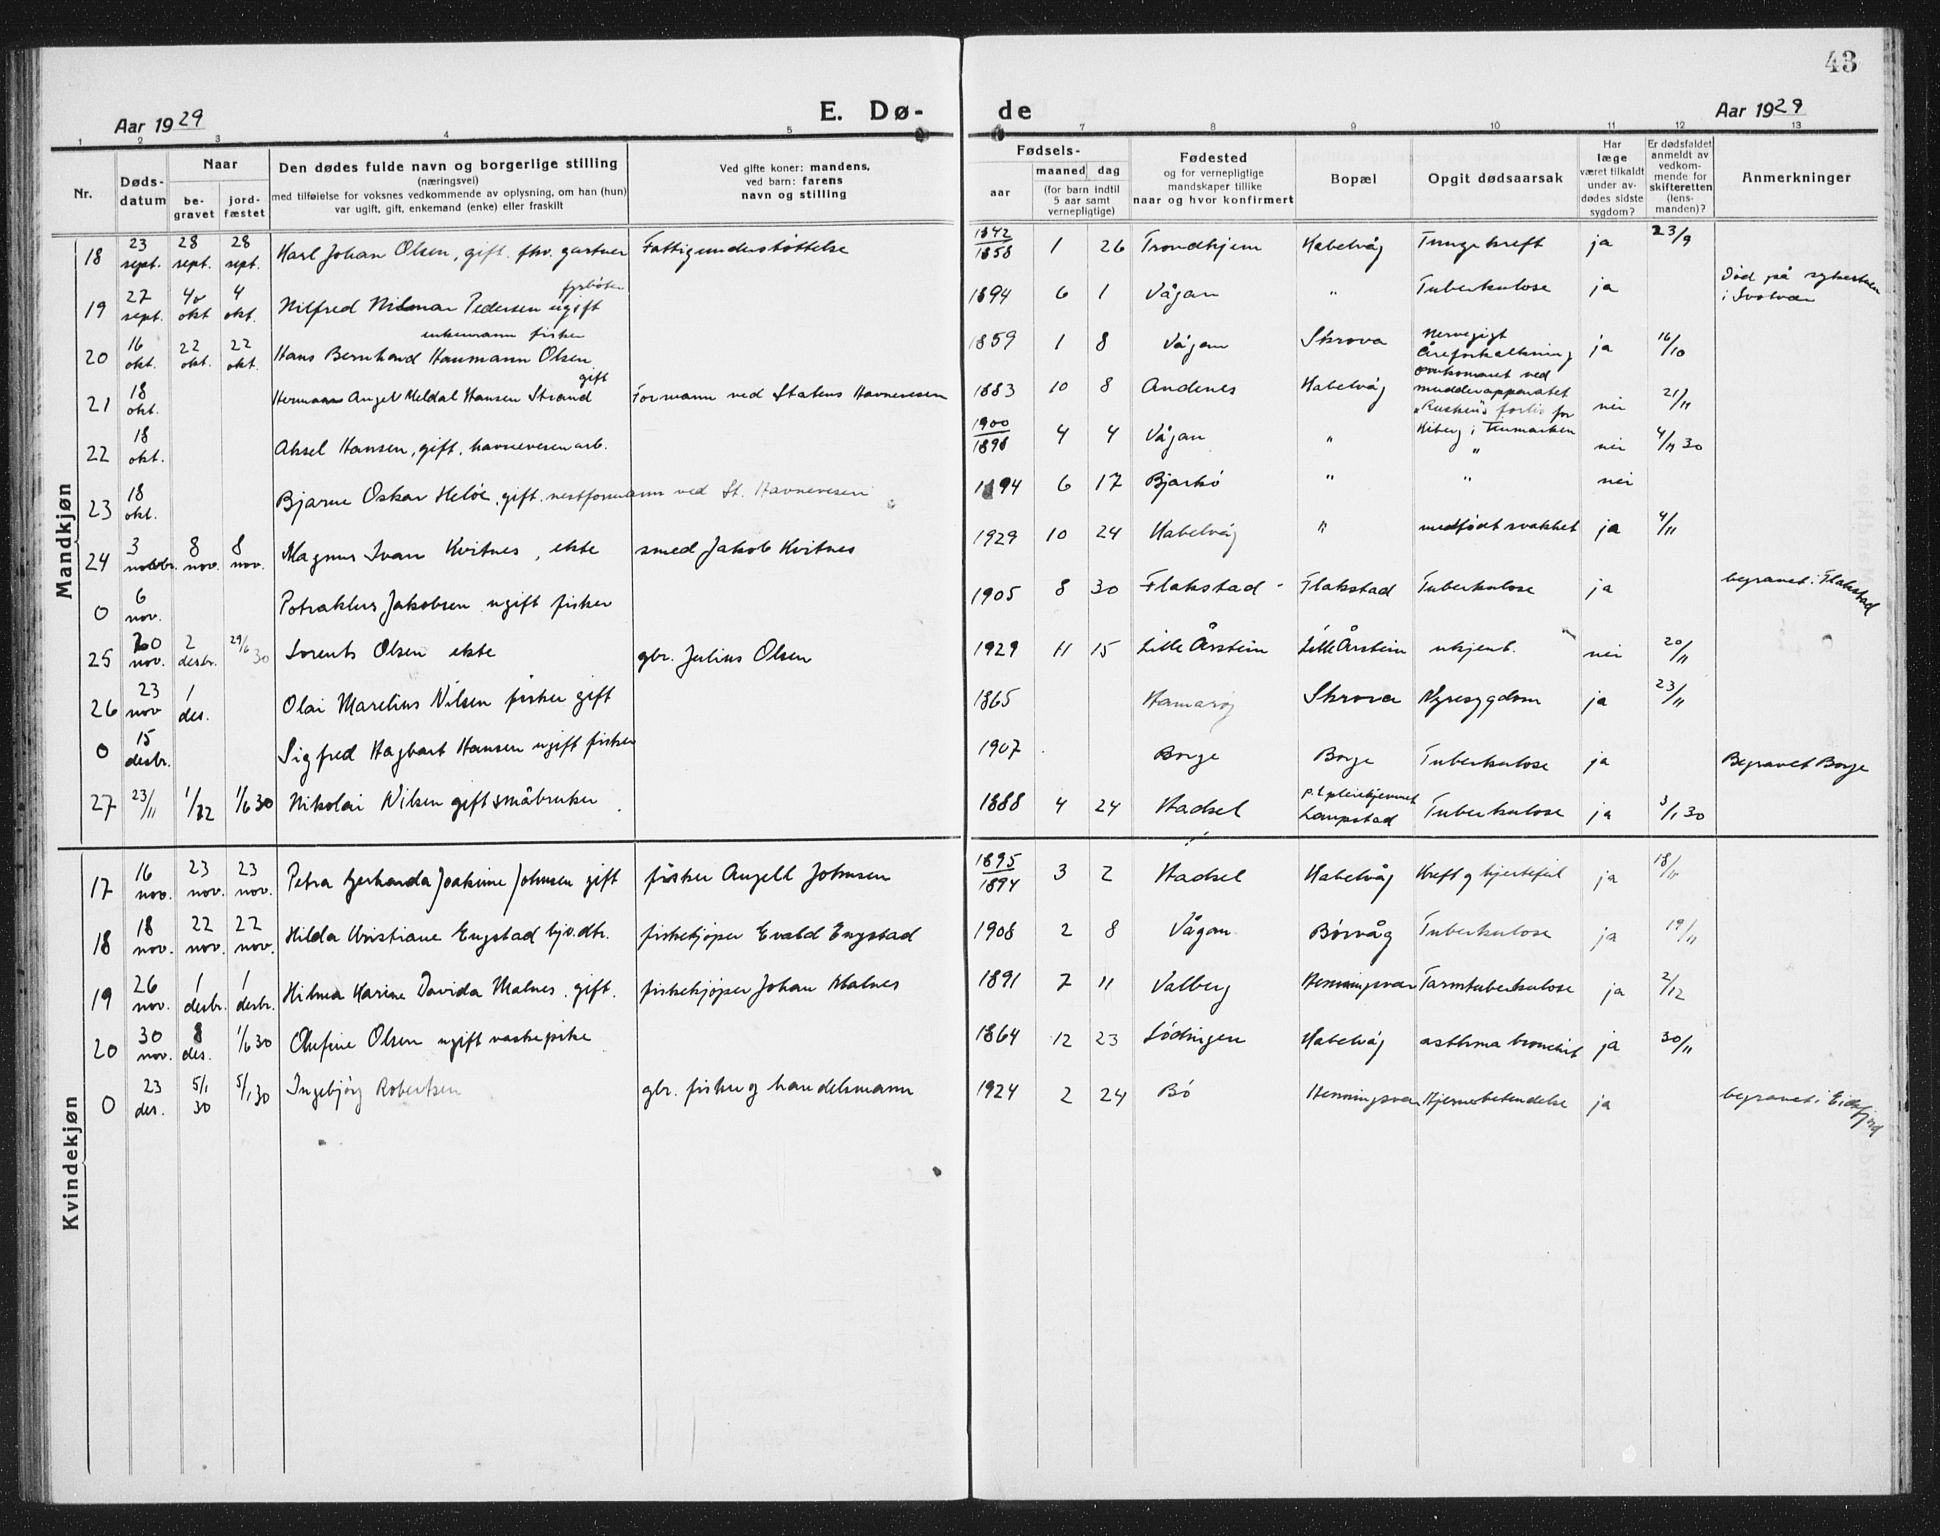 43
Aar 1929
E. Dø-
de
Aar 1929
1 2 3 4 5 6 7 8 9 10 11 12 13
Nr.
Døds-
datum
Naar
be-
gravet
jord-
fæstet
Den dødes fulde navn og borgerlige stilling
(næringsvei)
med tilføielse for voksnes vedkommende av oplysning, om han (hun)
var ugift, gift, enkemand (enke) eller fraskilt
Ved gifte koner: mandens,
ved barn: farens
navn og stilling
Fødsels-
aar
maaned dag
(for barn indtil
5 aar samt
vernepligtige)
Fødested
og for vernepligtige
mandskaper tillike
naar og hvor konfirmert
Bopæl
Opgit dødsaarsak
Har
læge
været tilkaldt
under av-
dødes sidste
sygdom?
Er dødsfaldet
anmeldt av
vedkom-
mende for
skifteretten
(lens-
manden)?
Anmerkninger
Mandkjøn
18 23 sept. 28 sept. 28 sept. Karl Johan Olsen, gift. fhv. gartner Fattigunderstøttelse 1842 1858 1 26 Trondhjem Kabelvåg Tungekreft ja 23/9
19 27 sept. 4 okt 4 okt. Nilfred Nilmar Pedersen ugift fyrbøter 1894 6 1 Vågan " Tuberkulose ja Død på sykestuen i Svolvær
20 16 okt. 22 okt. 22 okt. Hans Bernhard Haumann Olsen enkemann fisker 1859 1 8 Vågan Skrova Nervegigt Åreforkalkning ja 16/10
21 18 okt. Hermann Angel Meldal Hansen Strand gift Formann ved Statens Havnevesen 1883 10 8 Andenes Kabelvåg omkommet ved mudderapparatet "Ruskens" forlis for Kiberg i Finmarken nei 21/11
22 18 okt. Aksel Hansen, gift, havnevesenarb. 1900 1898 4 4 Vågan " " nei 4/11 30
23 18 okt. Bjarne Oskar Heløe, gift. nestformann ved St. Havnevesen 1894 6 17 Bjarkø " " nei
24 3 novbr. 8 nov. 8 nov. Magnus Ivan Kvitnes, ekte smed Jakob Kvitnes 1929 10 24 Kabelvåg " medfødt svakhet ja 4/11
0 6 nov. Potraklus Jakobsen ugift fisker 1905 8 30 Flakstad Flakstad Tuberkulose ja begravet i Flakstad
25 20 nov. 2 desbr. 29/6 30 Lorents Olsen ekte gbr. Julius Olsen 1929 11 15 Lille Årstein Lille Årstein ukjent. nei 20/11
26 23 nov 1 des. Olai Marelius Nilsen fisker gift 1865 Hamarøy Skrova Nyresygdom ja 23/11
0 15 desbr. Sigfred Hagbart Hansen ugift fisker 1907 Borge Borge Tuberkulose ja Begravet Borge
27 23/11 1/12 1/6 30 Nikolai Nilsen gift småbruker 1888 4 24 Hadsel p.t. pleiehjemmet Lampstad Tuberkulose ja 3/1 30
Kvindekjøn
17 16 nov. 23 nov. 23 nov. Petra Gerharda Joakime Johnsen gift fisker Angell Johnsen 1895 1894 3 2 Hadsel Kabelvåg Kreft og hjertefeil ja 18/11
18 18 nov. 22 nov. 22 nov. Hilda Kristiane Engstad hjv. dtr. fiskekjøper Evald Engstad 1908 2 8 Vågan Børvåg Tuberkulose ja 19/11
19 26 nov. 1 desbr. 1 desbr. Hilma Karine Davida Malnes. gift. fiskekjøper Johan Malnes 1891 7 11 Valberg Henningsvær Tarmtuberkulose ja 2/12
20 30 nov. 8 des. 1/6 30 Olufine Olsen ugift vaskepike 1864 12 23 Lødingen Kabelvåg asthma bronchit ja 30/11
0 23 des. 5/1 30 5/1 30 Ingebjørg Robertsen gbr. fisker og handelsmann 1924 2 24 Bø Henningsvær Hjernebetendelse ja begravet i Eidsfjord